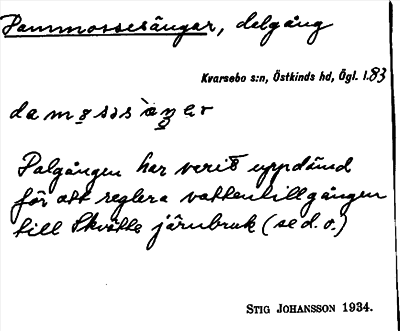 Dammossesängar, delgång
Kvarsebo s:n, Östkinds hd, Ögl. l. 83
Dalgången har verit uppdämd
för att reglera vattentillgången
till Skvätte järnbruk (se d. o.)
STIG JOHANSSON 1934.